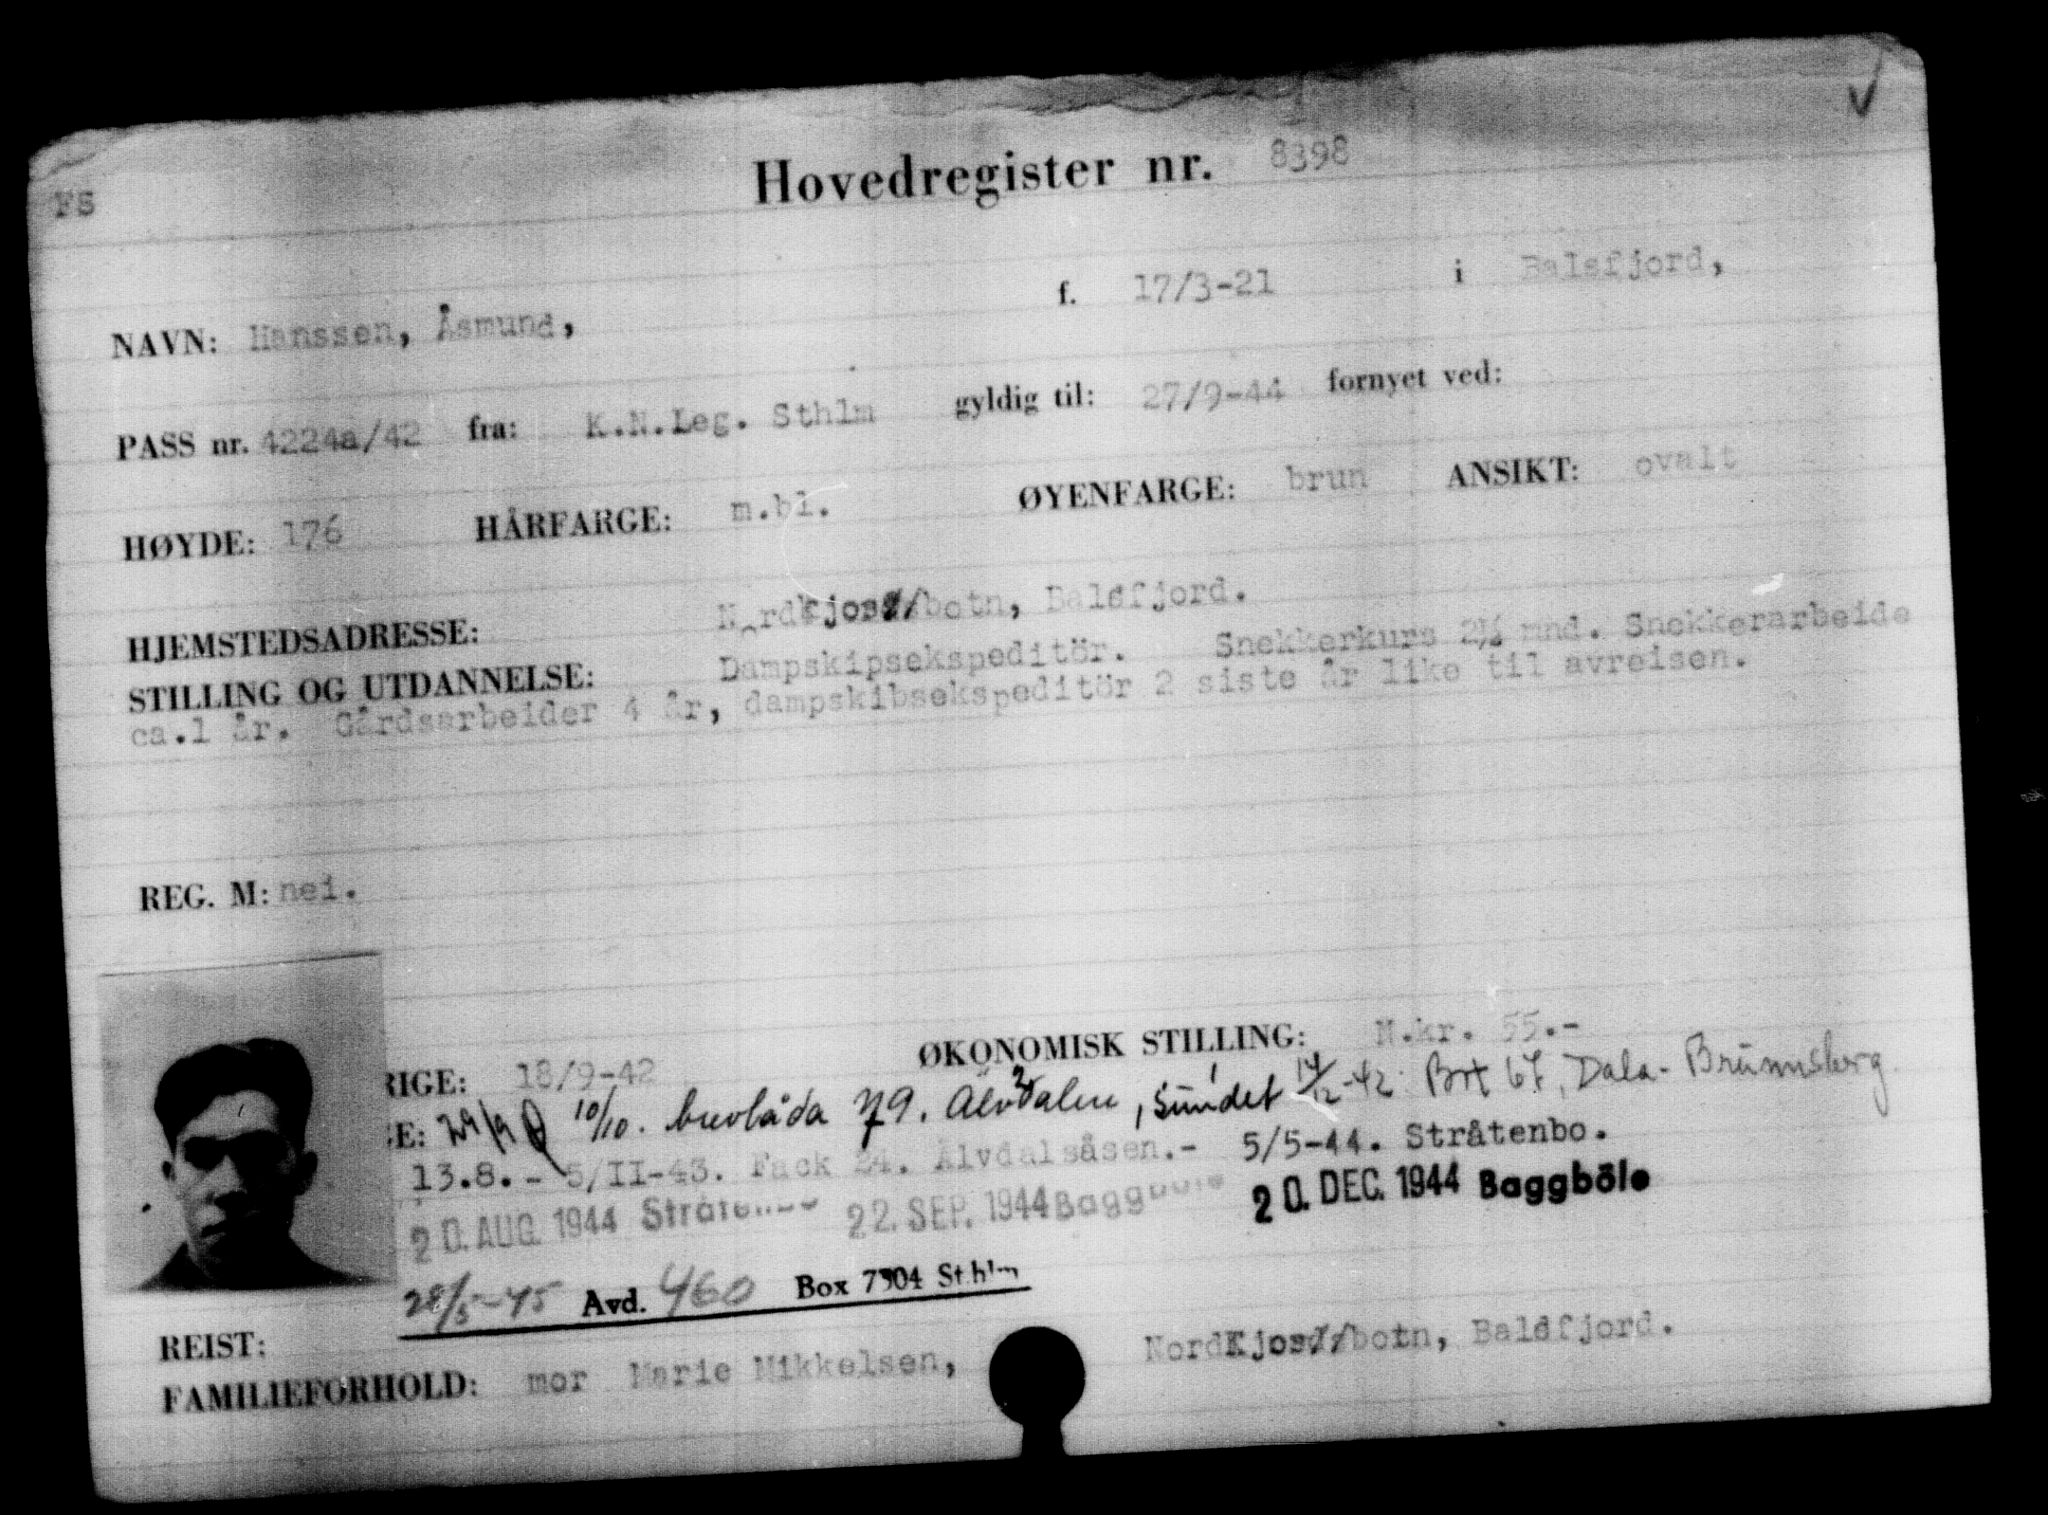 FS
Hovedregister nr. 8398
NAVN: Hanssen, Åsmund, f. 17/3-21 i Balsfjord,
PASS nr. 4224a/42 fra: K.N.Leg. Sthlm gyldig til: 27/9-44 fornyet ved:
HØYDE: 176 HÅRFARGE: m.bl. ØYENFARGE: brun ANSIKT: ovalt
HJEMSTEDSADRESSE: Nordkjosbotn, Balsfjord.
STILLING OG UTDANNELSE: Dampskipsekspeditör. Snekkerkurs 2½ mnd. Snekkerarbeide
ca.1 år. Gårdsarbeider 4 år, dampskibsekspeditör 2 siste år like til avreisen.
REG. M: nei.
RIGE: 18/9-42 ØKONOMISK STILLING: N.kr. 55.-
GE: 29/9 Ö 10/10. brevlåda 79. Älvdalen, Sundet 14/12-42 Box 67, Dala-Brunnsberg
13.8.- 5/II-43. Fack 24. Älvdalsåsen.- 5/5-44. Stråtenbo.
20. AUG. 1944 Stråtenbo 22. SEP. 1944 Baggböle 20. DEC. 1944 Baggböle
28/5-45 Avd. 460 Box 7304 Sthlm
REIST:
FAMILIEFORHOLD: mor Marie Mikkelsen, Nordkjosbotn, Balsfjord.